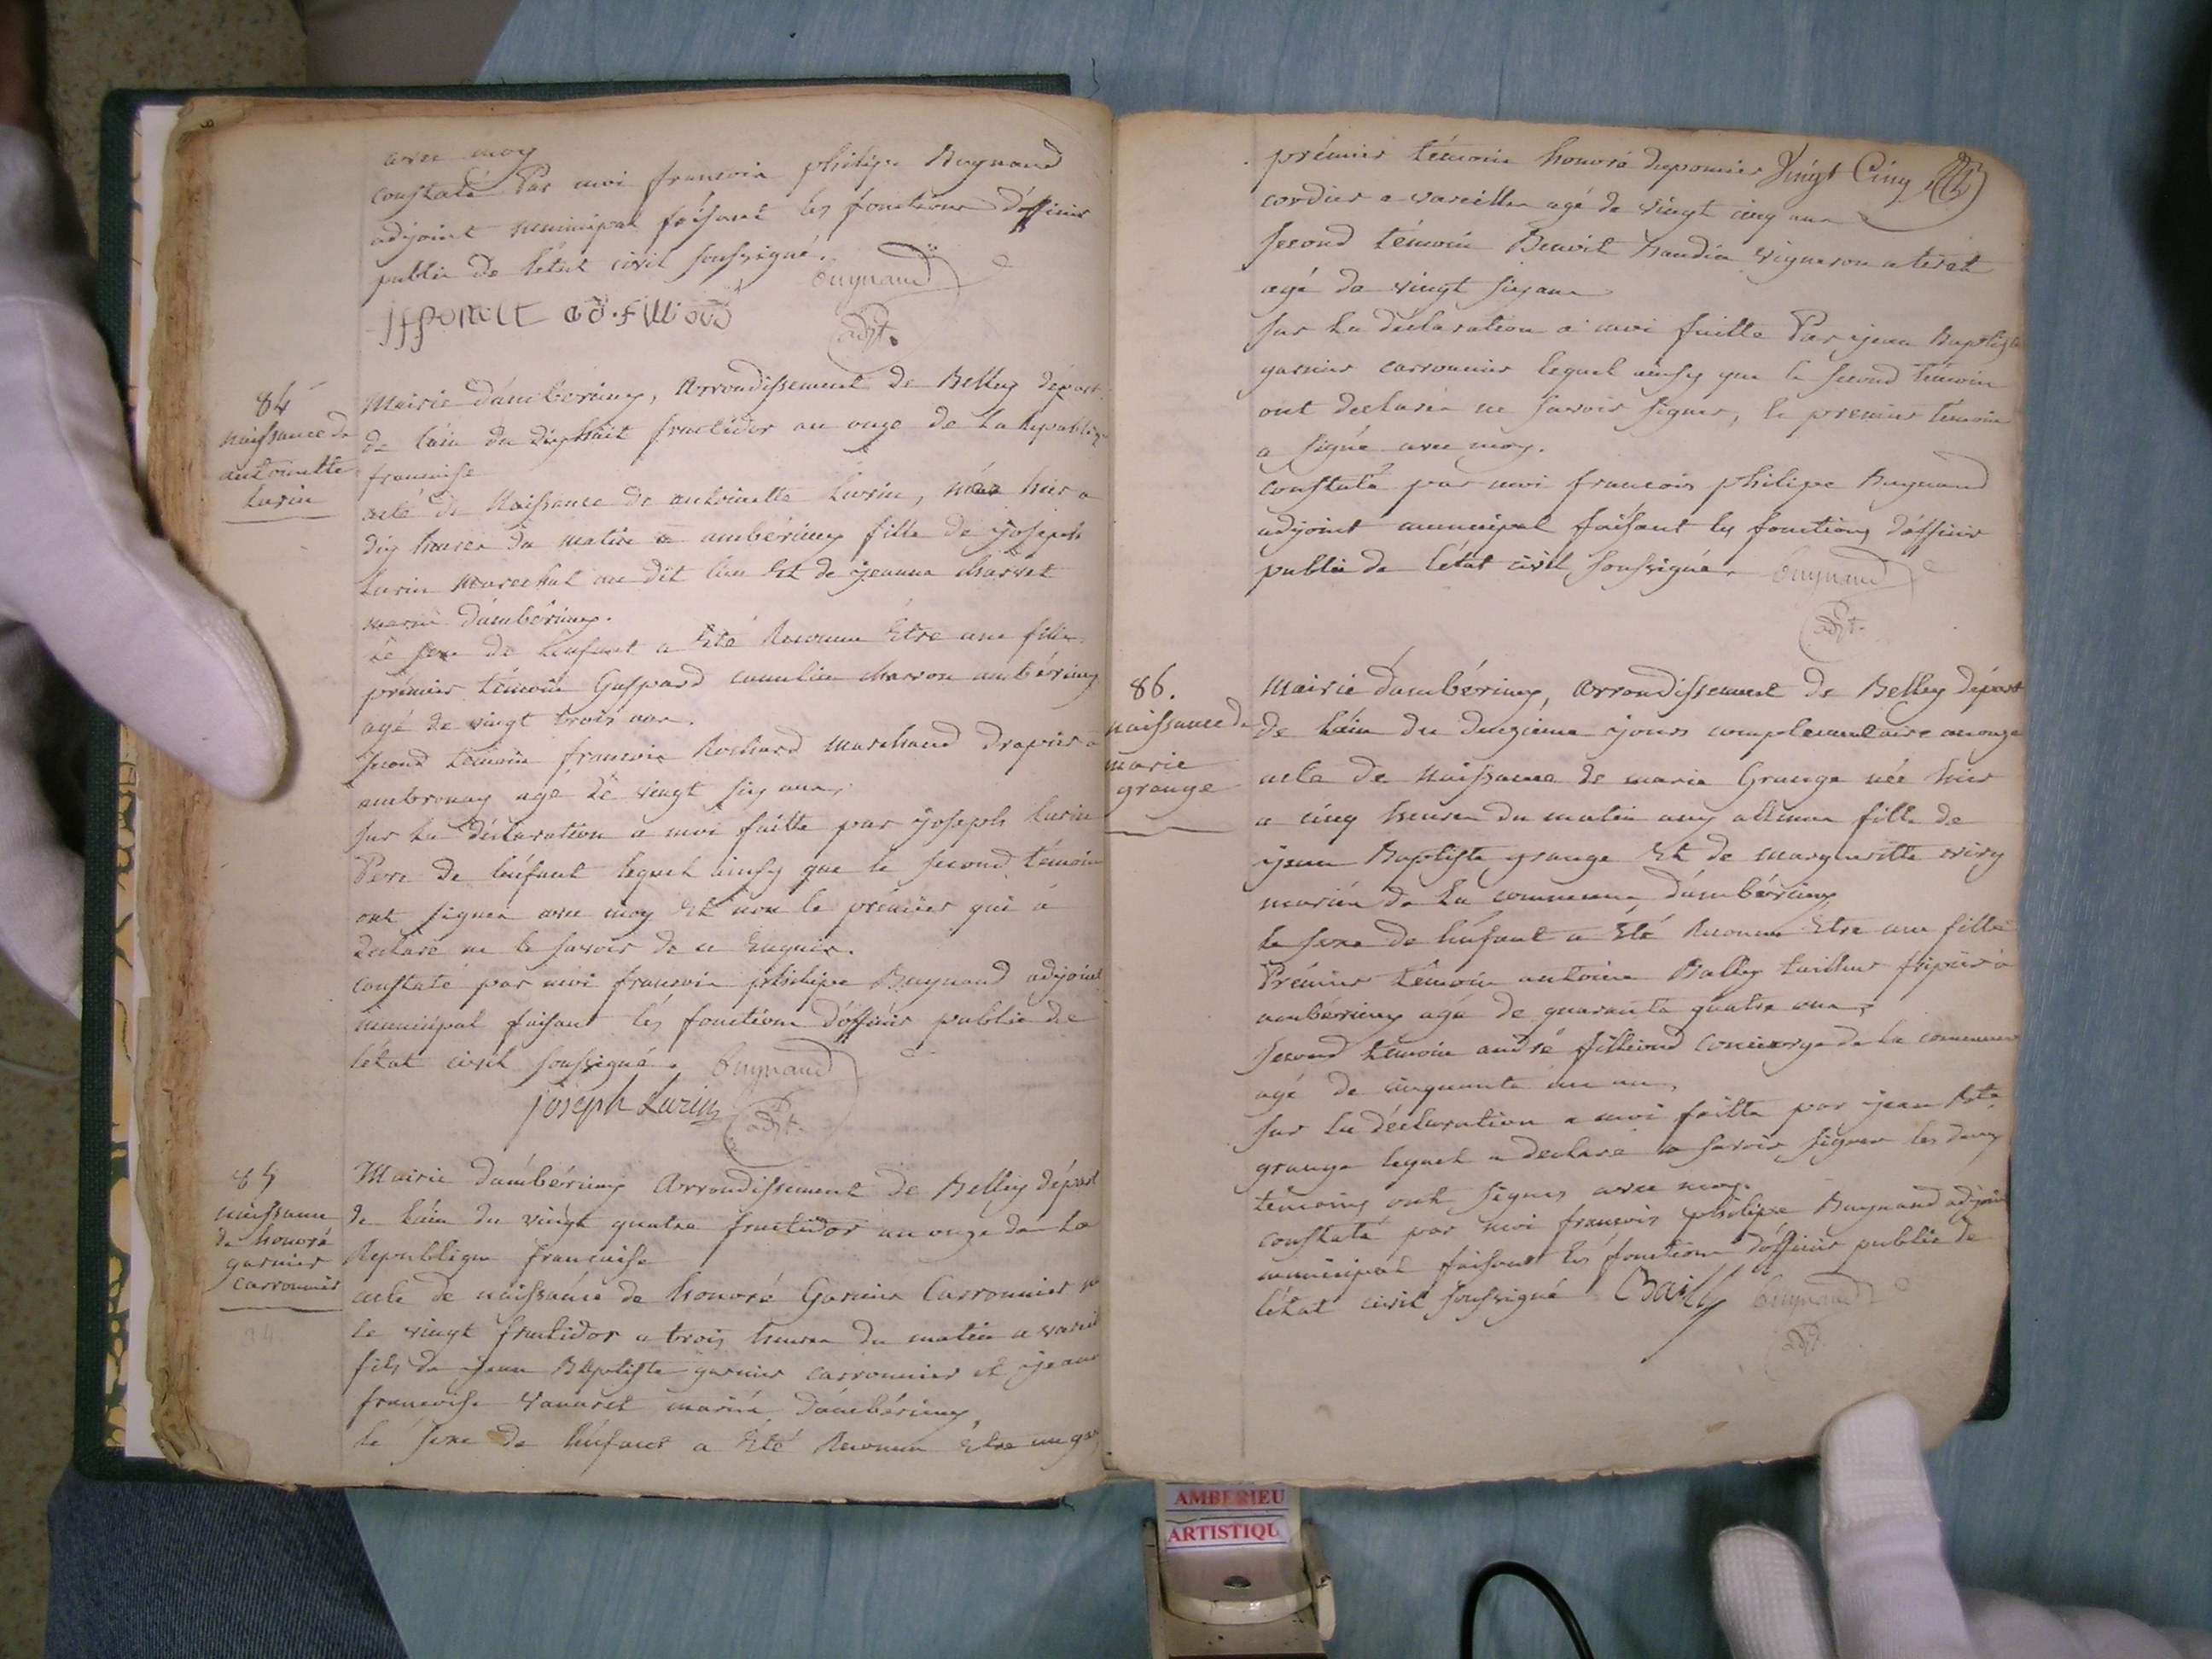 avec moy
constaté Par moi francois philipe Bugnand
adjoint municipal faisant les fonctions d'officier
public de l'état civil soussigné.
adjt.
84
naissance de
antoinette
Lurin
Mairie d'ambérieux, Arrondissement de Belley départ.
de l'ain du dix huit fructidor an onze de la Republiq
francaise
acte de Naissance de antoinette Lurin, née hier a
dix heures du matin a ambérieux fille de joseph
Lurin marechal au dit lieu Et de jeanne
mariés d'ambérieux.
Le sexe de l'enfant a Eté Reconnu Etre une fille
prémier témoin Gaspard charron ambérieux
agé de vingt trois ans.
second témoin francois Rochard marchand drapier a
ambronay age de vingt six ans,
sur la déclaration a moi faitte par joseph Lurin
Pere de l'enfant lequel ainsy que le second témoin
ont signés avec moy Et non le prémier qui a
declaré ne le savoir de ce Enquis.
constaté par moi francois philipe Bugnand adjoint
municipal faisant les fonctions d'officier public de
l'état civil soussigné. Bugnand
joseph Lurin
adjt.
85
naissance
de honoré
garnier
carronnier
Mairie d'ambérieux Arrondissement de Belley départ
de l'ain du vingt quatre fructidor an onze de La
Republique francaise
acte de naissance de honoré Garnier Carronnier né
le vingt fructidor a trois heures du matin a vareil
fils de jean Baptiste garnier carronnier et jeanne
francoise mariés d'ambérieux,
le sexe de l'enfant a Eté Reconnu Etre un gar
Vingt Cinq
prémier témoin honoré
cordier a vareilles agé de vingt cinq ans
second témoin Benoit vigneron a tiret
agé de vingt six ans
sur la declaration a moi faitte Par jean Baptiste
garnier carronnier lequel ainsy que le second témoin
ont declarés ne savoir signer, le premier témoin
a signé avec moy.
constaté par moi francois philipe Bugnand
adjoint municipal faisant les fonctions d'officier
public de l'état civil soussigné. Bugnand
adjt.
86.
naissance de
marie
grange
Mairie d'ambérieux, Arrondissement de Belley départ
de l'ain du deuxieme jours complementaire an onze
acte de naissance de marie Grange née hier
a cinq heures du matin aux allimes fille de
jean Baptiste grange Et de margueritte
mariés de la commune d'ambérieux
le sexe de l'enfant a Eté Reconnu Etre une fille
Prémier témoin antoine Bally tailleur fripier a
ambérieux agé de quarante quatre ans,
second témoin andré filliond concierge de la commune
agé de cinquante un ans,
sur la déclaration a moi faitte par jean Bte.
grange lequel a declaré savoir signer les deux
témoins ont signés avec moy.
constaté par moi francois philipe Bugnand adjoint
municipal faisant les fonctions d'officier public de
l'état civil soussigné Bailly Bugnand
adjt.
AMBERIEU
ARTISTIQU